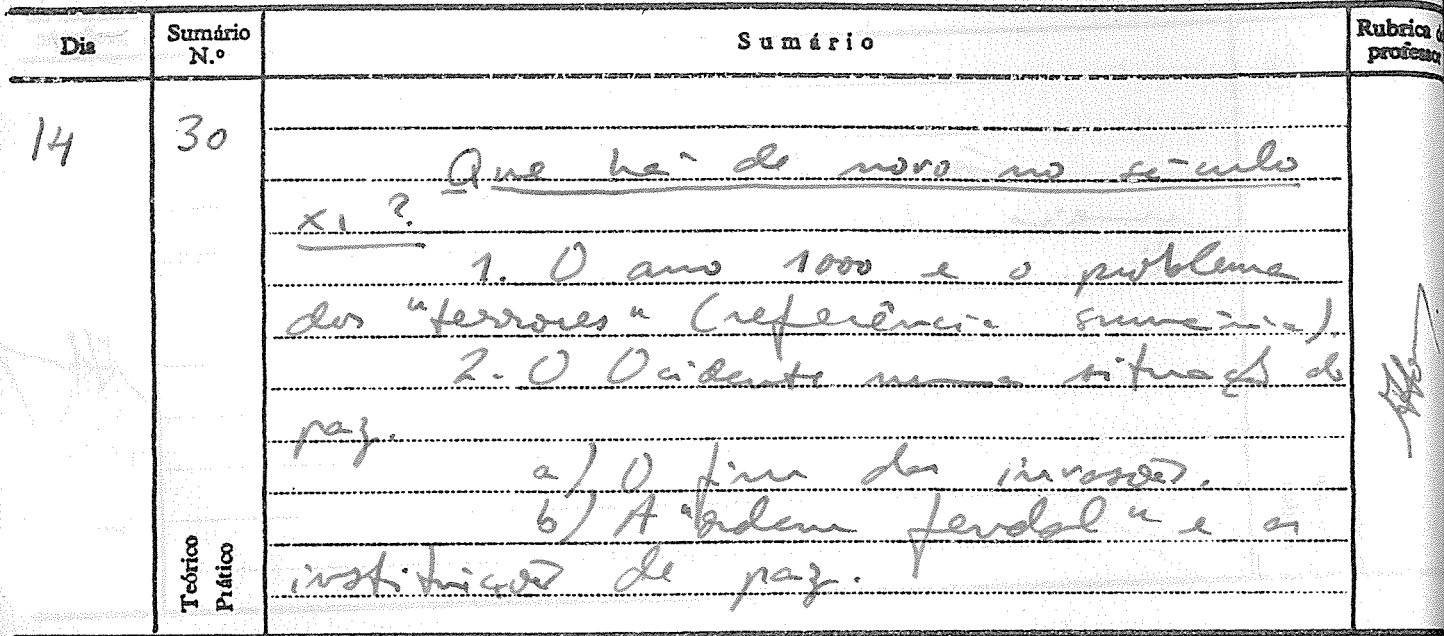 Dia Sumário N.º Sumário Rubrica d profess
14 30
Que há de novo no século
XI?
1. O ano 1000 e o problema
dos "terrores" (referência sumária).
2. O Ocidente numa situação de
paz.
a) O fim das invasões.
b) A "ordem feudal" e as
instituições de paz.
Teórico
Prático